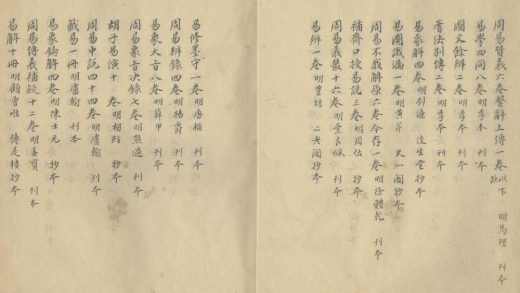 周易贊義六卷繫辭上傳一卷以下缺 明馬理 刊本
易學四同八卷明季本 刊本
圖文餘辨二卷明季本 刊本
蓍法別傳二卷明季本 刊本
易象解四卷明劉濂 淡生堂抄本
易圖識漏一卷明黃芹 天一閣抄本
周易不我解原六卷今存一卷 明徐體乾 刊本
補齋口授易說三卷明周佐 抄本
周易義叢十六卷明葉良佩 刊本
易辨一卷明豐坊 二老閣抄本
易修墨守一卷明唐樞 刊本
周易辨錄四卷明楊爵 刊本
易象大旨八卷明薛甲 刊本
周易象旨決錄七卷明熊過 刊本
胡子易演十 卷明胡經 抄本
周易中說四十四卷明盧翰 刊本
籤易一冊明盧翰 刊本
易象鉤解四卷明陳士元 抄本
周易傳義補疑十二卷明姜寶 刊本
易解十冊明顧曾唯 傳是樓抄本